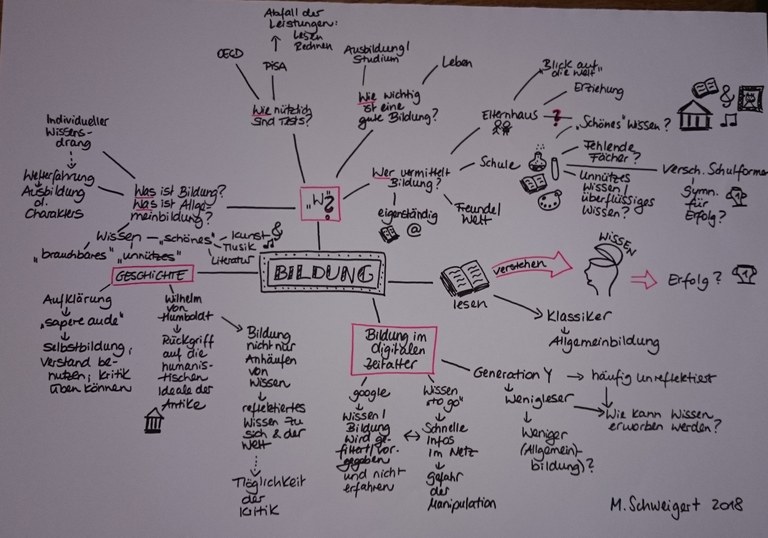 Abfall der
Leistungen:
Lesen
Rechnen
OECD
PISA
Wie nützlich
sind Tests?
Ausbildung/
Studium
Leben
Wie wichtig
ist eine
gute Bildung?
Blick auf
die Welt"
Erziehung
Elternhaus
?
„Schönes" Wissen?
Wer vermittelt
Bildung?
Schule
Fehlende
Fächer?
Unnützes
Wissen/
überflüssiges
Wissen?
Versch. Schulformen
Gymn.
für
Erfolg?
eigerständig
@
Freunde/
Welt
„W"?
Individueller
Wissens-
drang
Welterfahrung
Ausbildung
d. Charakters
Was ist Bildung?
Was ist Allge-
meinbildung?
Wissen
„schönes"
Kunst
Musik
Literatur
„brauchbares"
„unnützes"
BILDUNG
GESCHICHTE
Aufklärung
„sapere aude"
Selbstbildung,
Verstand be-
nutzen, Kritik
üben können
Wilhelm
von
Humboldt
Rückgriff
auf die
humanis-
tischen
Ideale der
Antike
Bildung
nicht nur
Anhäufen
von
Wissen
reflektiertes
Wissen zu
sich & der
Welt
Möglichkeit
der
Kritik
lesen
verstehen
WISSEN
Erfolg?
Klassiker
Allgemeinbildung
Bildung im
digitalen
Zeitalter
google
Wissen/
Bildung
wird ge-
filtert/vor-
gegeben
und nicht
erfahren
Wissen
„to go"
Schnelle
Infos
im Netz
Gefahr
der
Manipulation
Generation Y
häufig unreflektiert
Wenigleser
Wie kann Wissen
erworben werden?
Weniger
(Allgemein)-
bildung)?
M. Schweigert 2018